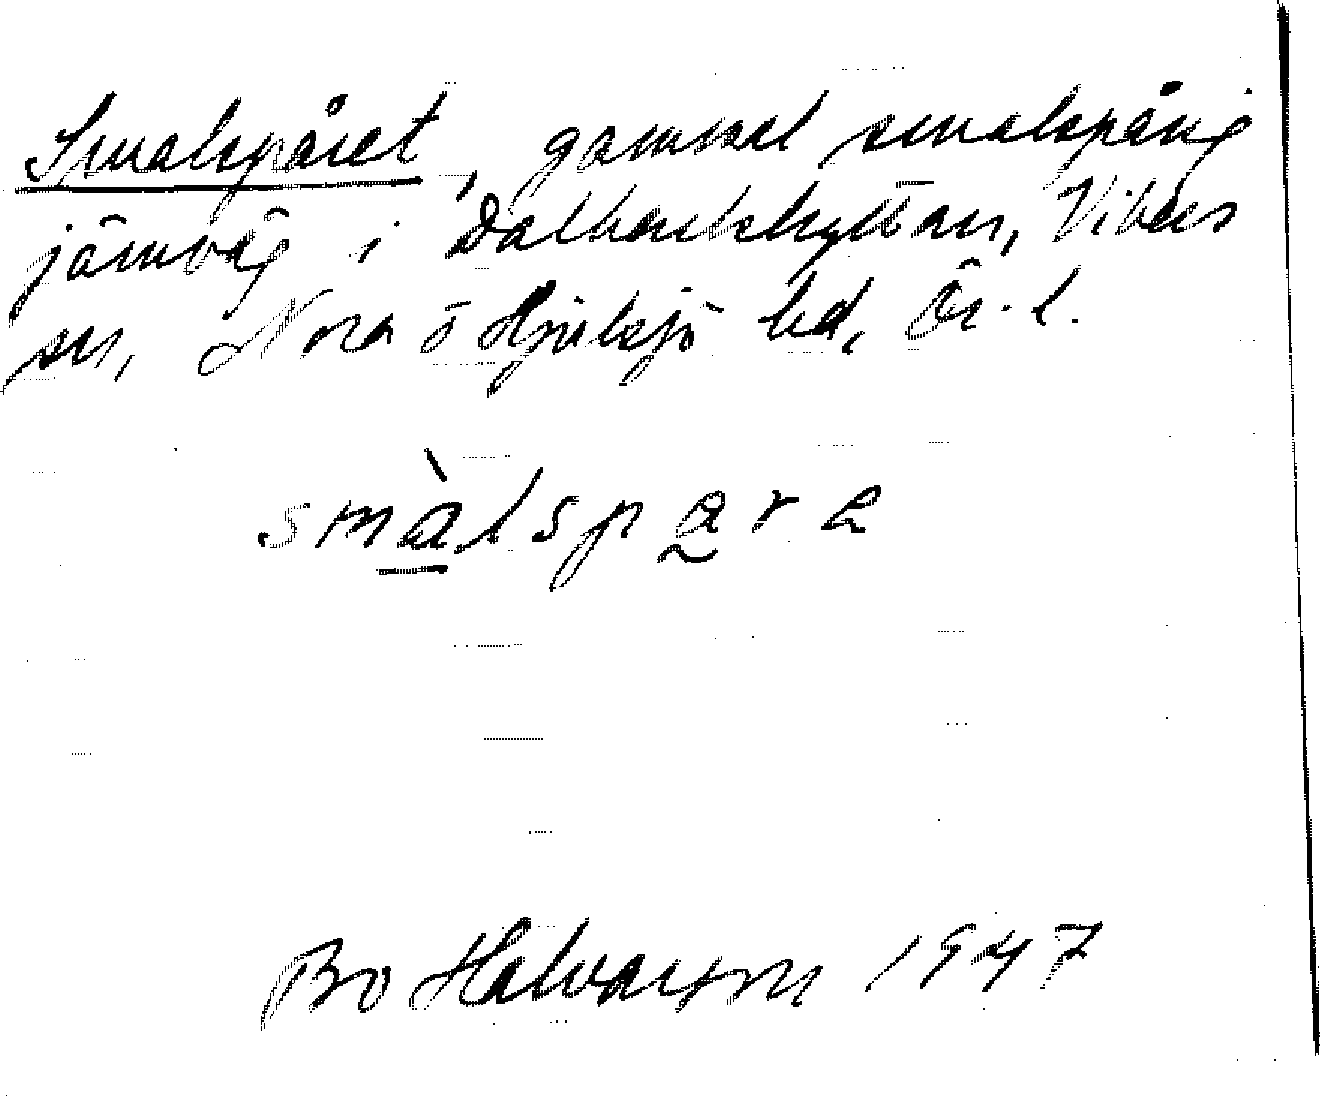 Smalspåret, gammal smalspårig
järnväg i Dalkarlshyttan, Vikers
sn, Nora o Hjulsjö bd, Ör. l.
smàlspåre
Bo Halvarson 1947